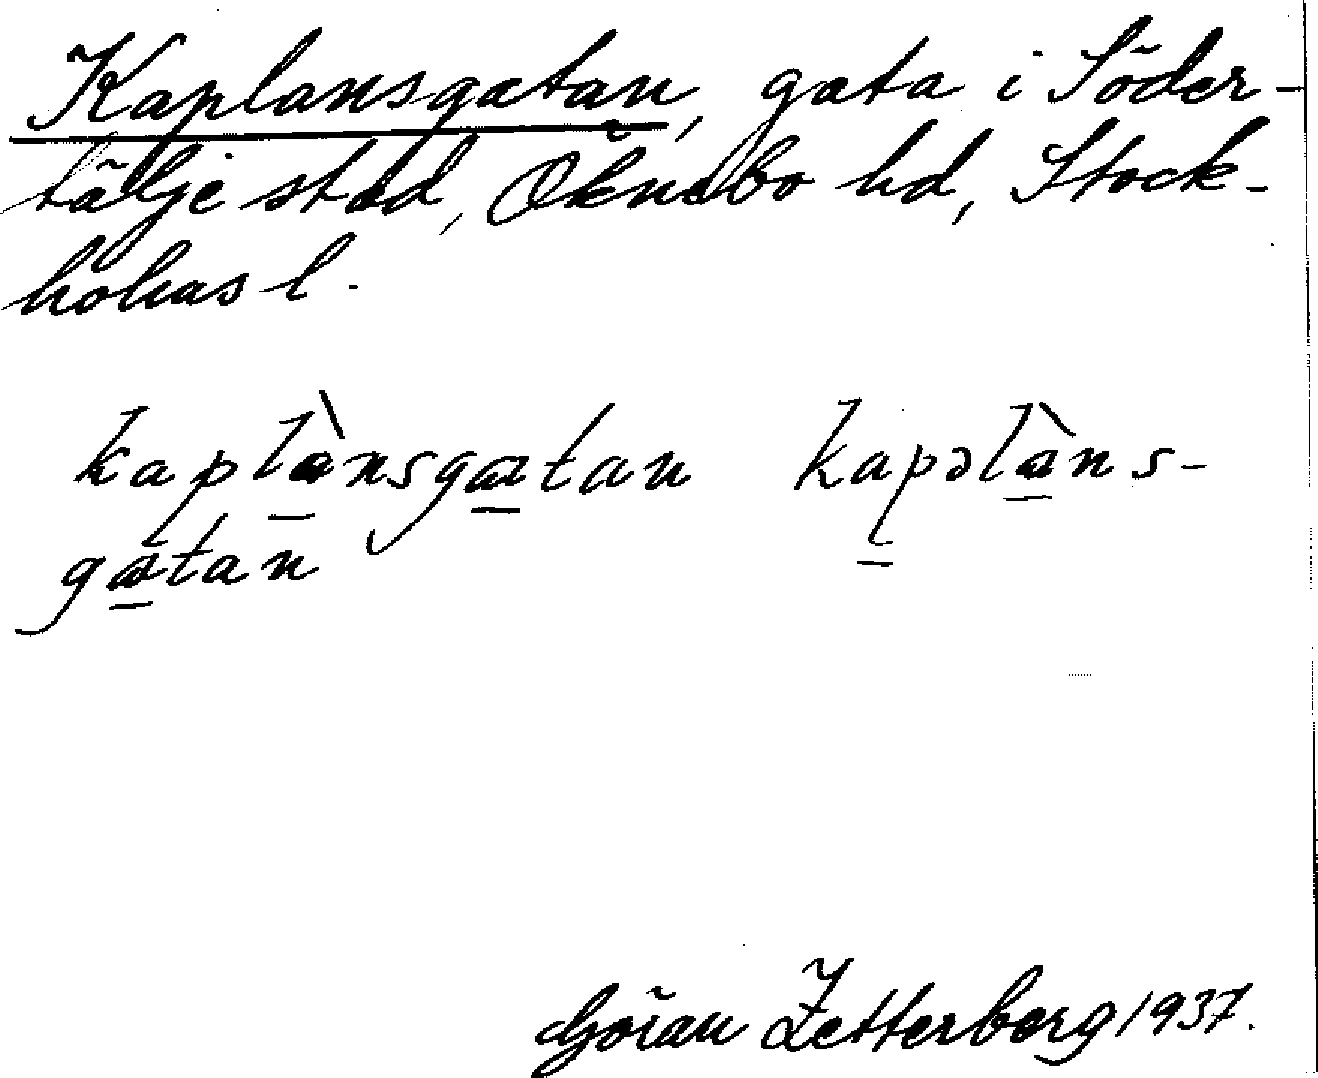 Kaplansgatan, gata i Söder-
tälje stad, Öknebo hd, Stock-
holms l.
kaplànsgatan kapəlàns-
gatan
Göran Zetterberg 1937.